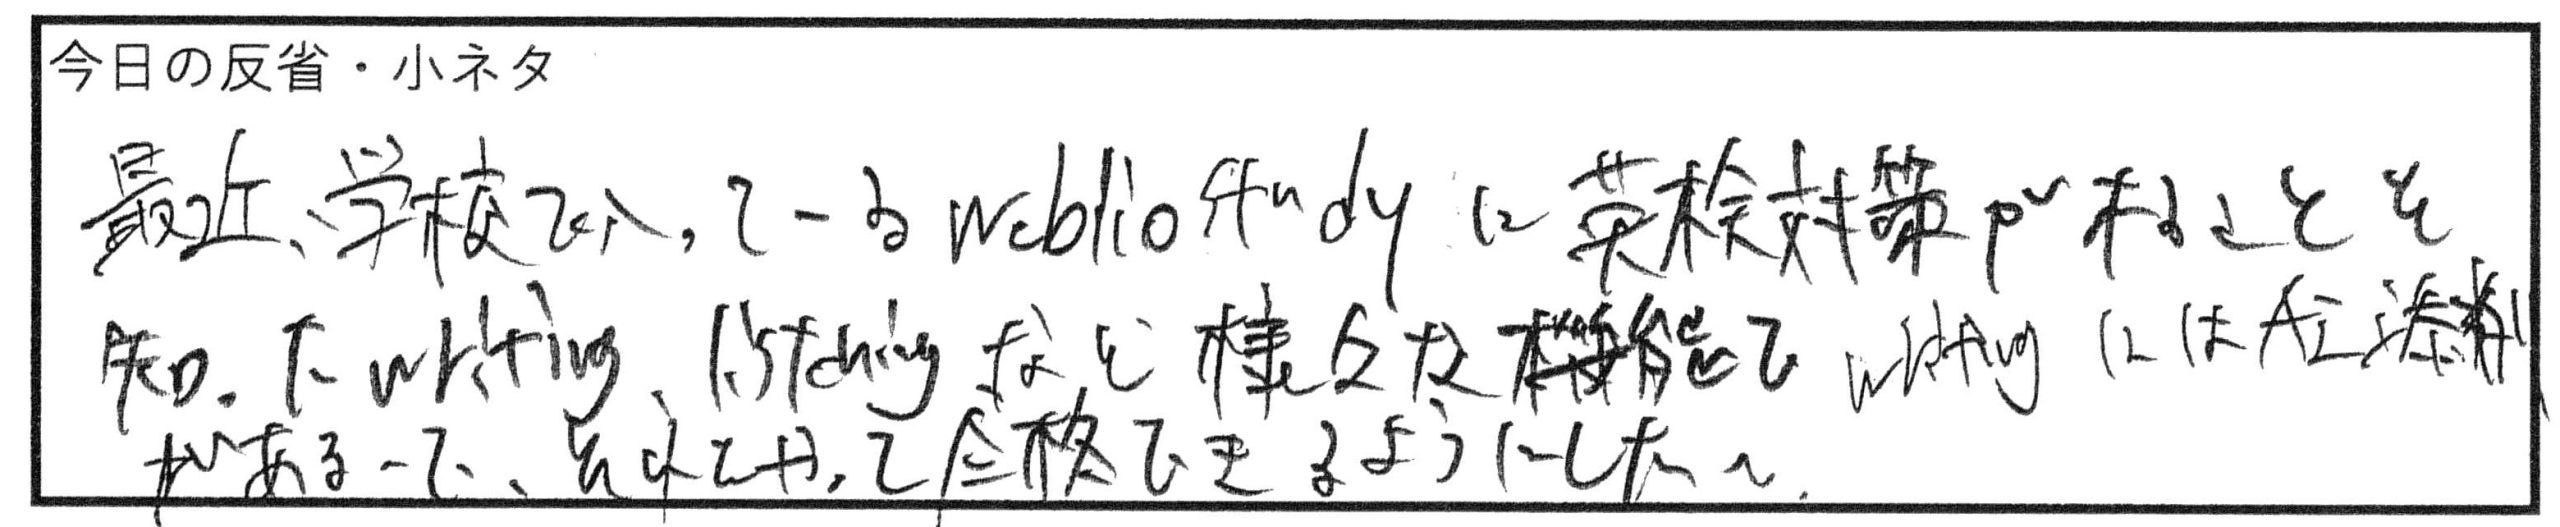 今日の反省・小ネタ
最近、学校で入っている weblio study に英検対策があることを
知った writing、listening など様々な機能で writing にはAI添削
があるので、それを使って合格できるようにしたい。